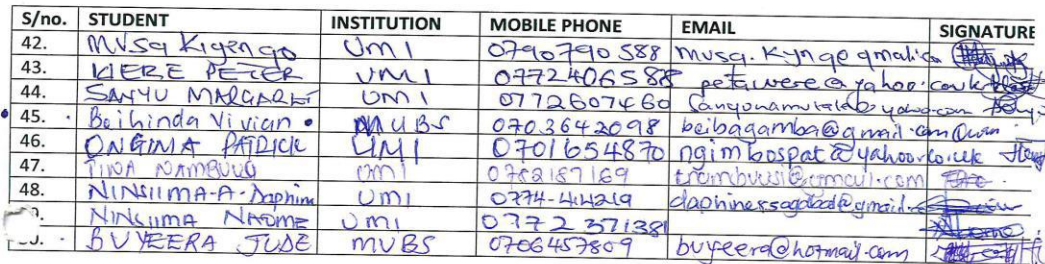 S/no. STUDENT INSTITUTION MOBILE PHONE EMAIL SIGNATURE
42. Musa Kigengo UMI 0790790588 musa.kyngo gmail.co
43. WERE PETER UMI 0772406588 petawere@yahoo.co.uk
44. SANYU MARGARET UMI 0772607460
45. Beihinda Vivian MUBS 0703642098 beibagamba@gmail.com
46. ONGIMA PATRICK UMI 0701654870 ngimbospat@yahoo.co.uk
47. TINA NAMBUUSI UMI 0782187169
48. NINSIIMA-A-Daphine UMI 0774-414219
NINSIIMA NAOME UMI 0772371381
BUYEERA JUDE MUBS 0706457809 buyeera@hotmail.com